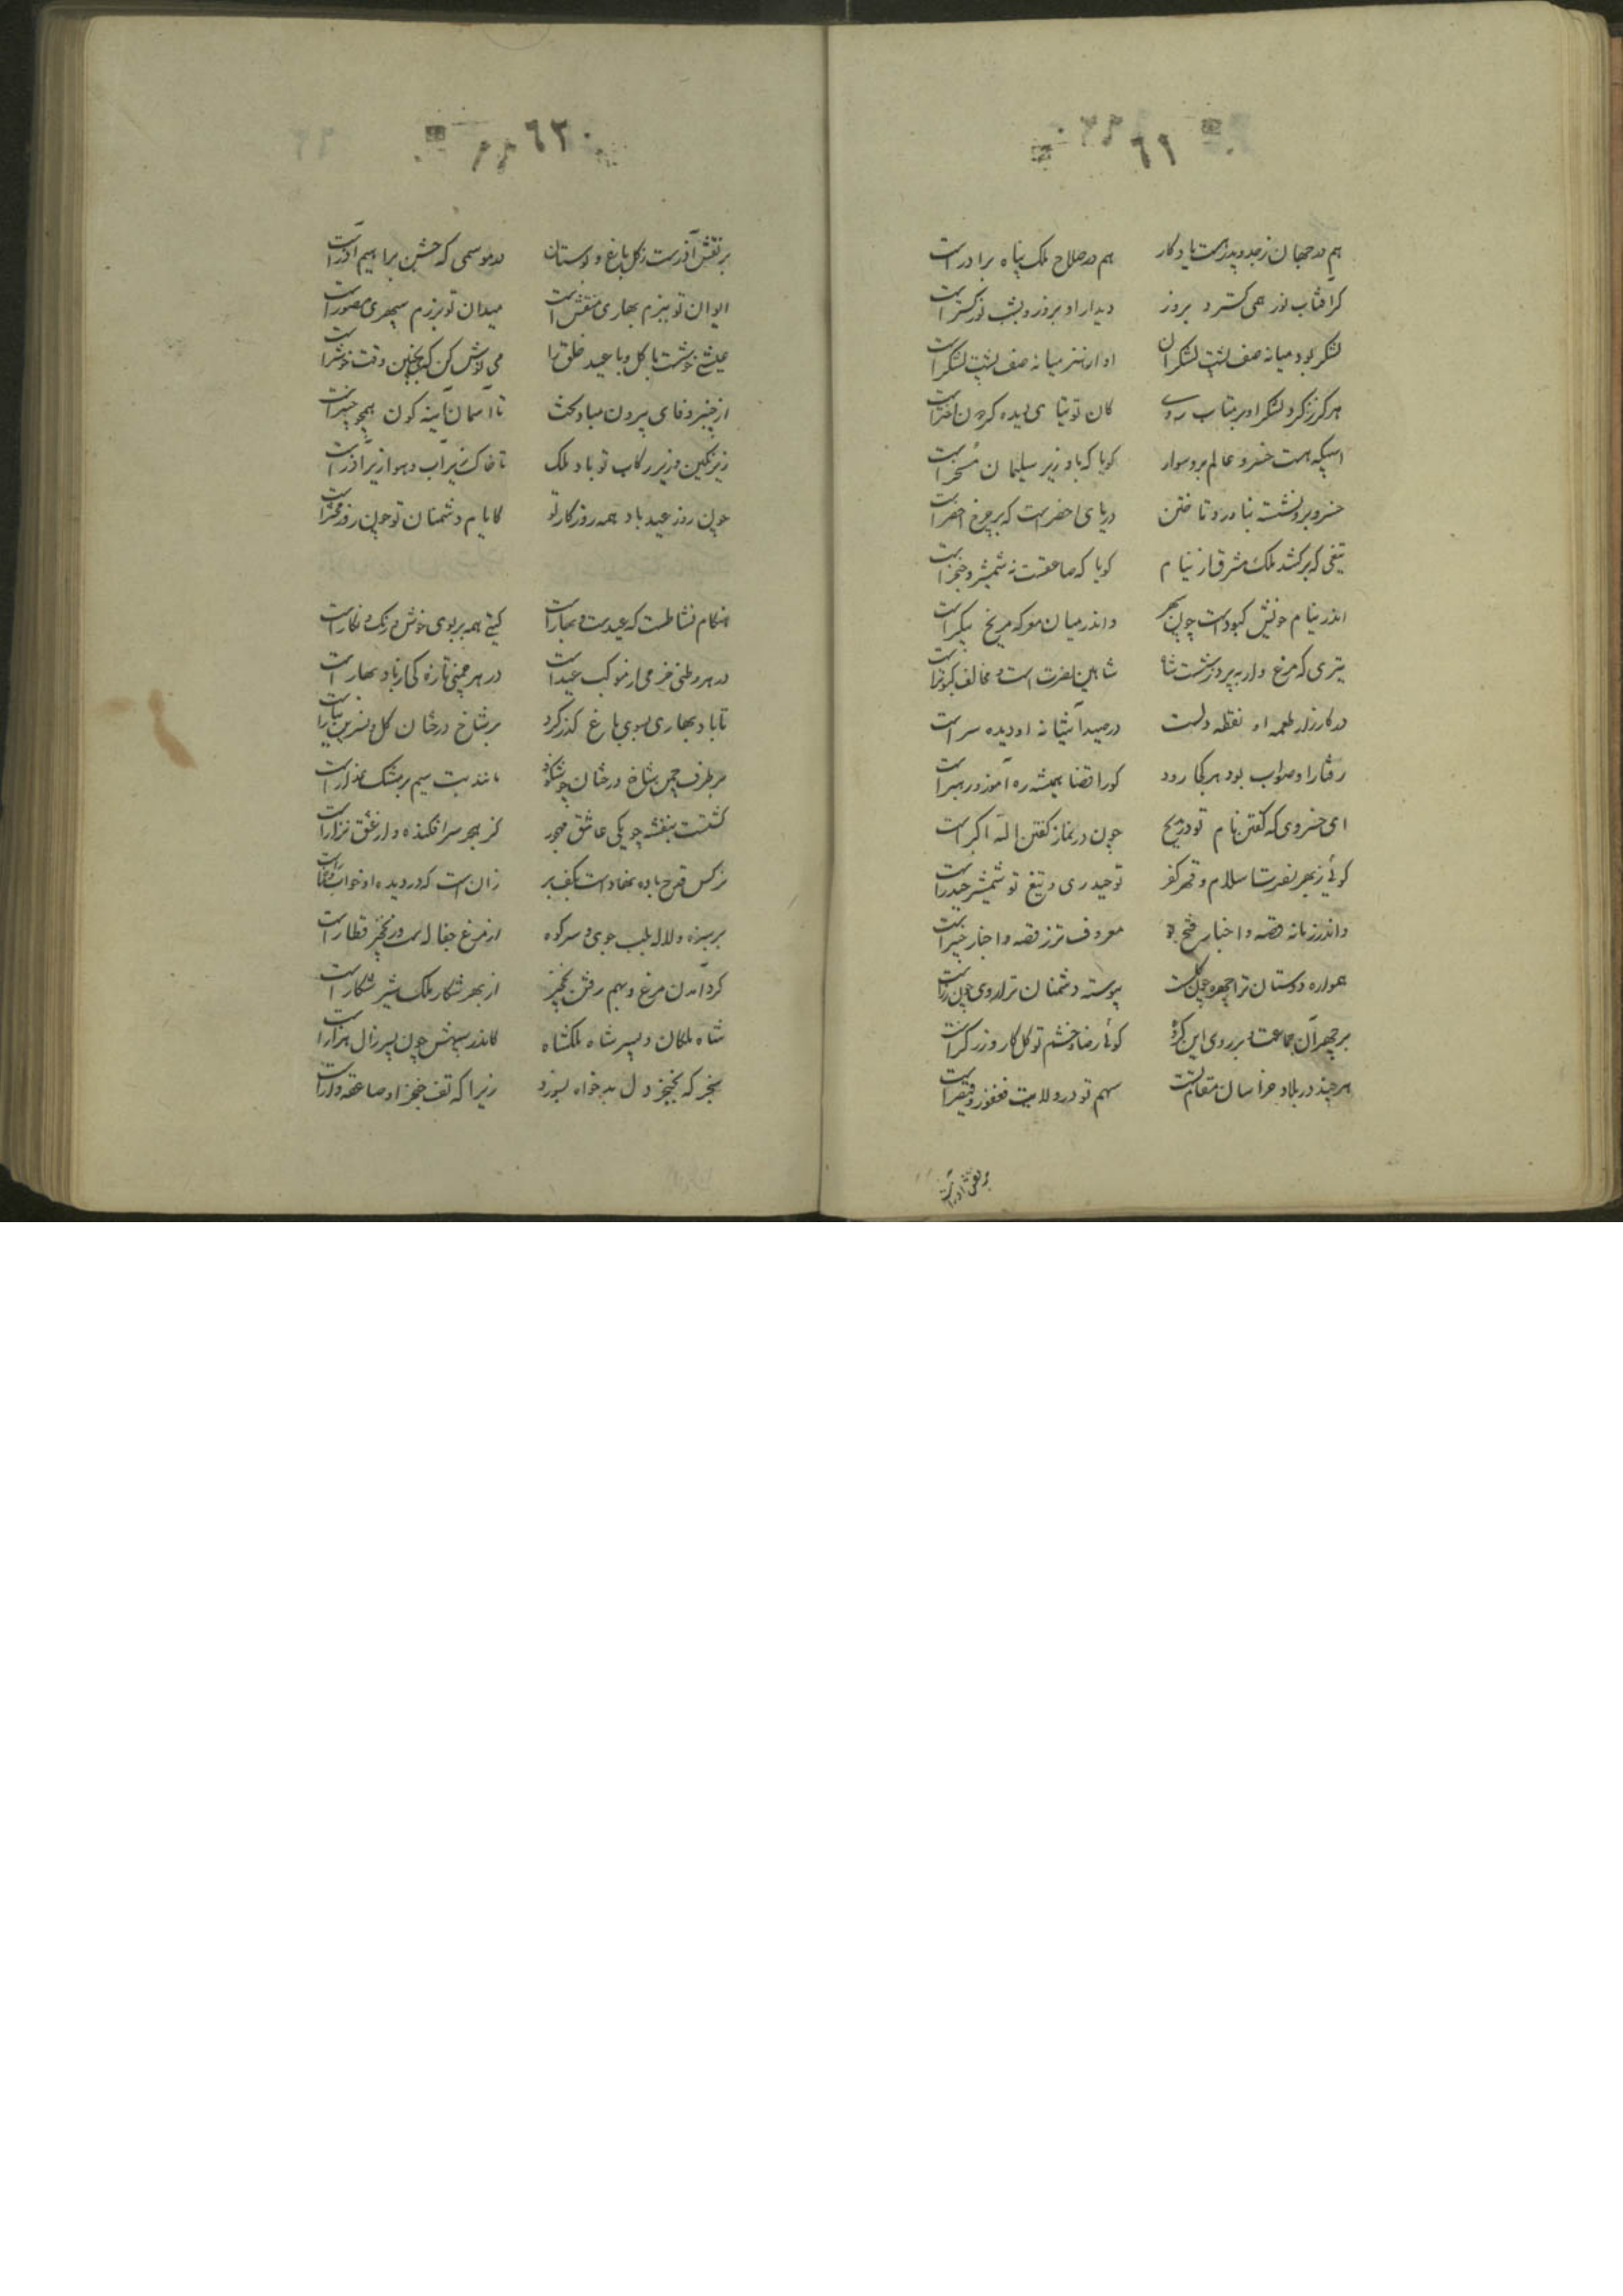 ٦١
هم در جهان ز جد و پدرست یادکار هم در صلاح ملک پناه برادراست
کر آفتاب نور همی کسترد بروز دیدار او بروز و بشب نورکستراست
لشکر بود میانه صف پشت لشکران او از هنر میانه صف پشت لشکراست
هرکز ز کرد لشکر او بر متاب روی کان توتیای دیده کردون اختراست
اسپیکه هست خسرو عالم برو سوار کویا که باد زیر سلیمان مسخراست
خسرو برو نشسته بناورد و تاختن دریای اخضرست که بر چرخ اخضراست
تیغی که برکشد ملک مشرق از نیام کویا که صاعقست نه شمشیر و خنجراست
اندر نیام خویش کبودست چون سپهر واندر میان معرکه مریخ پیکراست
تیری که مرغ وار بپرد ز شست شاه شاهین نصرت است و مخالف کبوتراست
در کارزار طعمه او نقطه دلست در صید آشیانه او دیده سراست
رفتار او صواب بود هر کجا رود کورا قضا همیشه ره آموز و رهبراست
ای خسروی که کفتن نام تو در مدیح چون در نماز کفتن الله اکبراست
کوئی ز بهر نصرت اسلام و قهر کفر تو حیدری و تیغ تو شمشیر حیدراست
واندر زمانه قصه و اخبار فتح تو معروف تر ز قصه و اخبار خیبراست
همواره دوستان ترا چهره چون کلست پیوسته دشمنان ترا روی چون زراست
بر چهر آن جماعت و بر روی این کروه کوئی رضا و خشم تو کلکار و زرکراست
هر چند در بلاد خراسان مقام تست سهم تو در ولایت فغفور و قیصراست
بر نقش آذرست
٦٢
بر نقش آذرست ز کل باغ و بوستان در موسمی که جشن براهیم آذراست
ایوان تو ببزم بهاری منقش است میدان تو برزم سپهری مصوراست
عیشی خوشست با کل و با عید خلق را می نوش کن که این چنین وقت خوشتراست
از چنبر وفای تو بیرون مباد بخت تا آسمان آینه کون همچو چنبراست
زیر نکین و زیر رکاب تو باد ملک تا خاک زیر آب و هوا زیر آذراست
چون روز عید باد همه روزکار تو کایام دشمنان تو چون روز محشراست
هنکام نشاطست که عیدست و بهاراست کیتی همه پر بوی خوش و رنک و نکاراست
در هر وطنی خرمی از موکب عیداست در هر چمنی تازه کی از باد بهاراست
تا باد بهاری بسوی باغ کذر کرد بر شاخ درختان کل و نسرین
بر طرف چمن شاخ درختان چو شکوفه مانند بت سیم بر مشک عذاراست
کشتست بنفشه چو یکی عاشق مهجور کز هجر سرافکنده و از عشق نزاراست
نرکس قدح باده نهادست بکف بر زان است که در دیده او خواب و خماراست
بر سبزه و لاله بلب جوی و سر کوه از مرغ جفاله ست و ز نخجیر قطاراست
کرد آمدن مرغ و بهم رفتن نخجیر از بهر شکار ملک شیر شکاراست
شاه ملکان و پسر شاه ملکشاه کاندر سپهش چون پسر زال هزاراست
سنجر که بخنجر دل بدخواه بسوزد زیرا که تف خنجر او صاعقه واراست